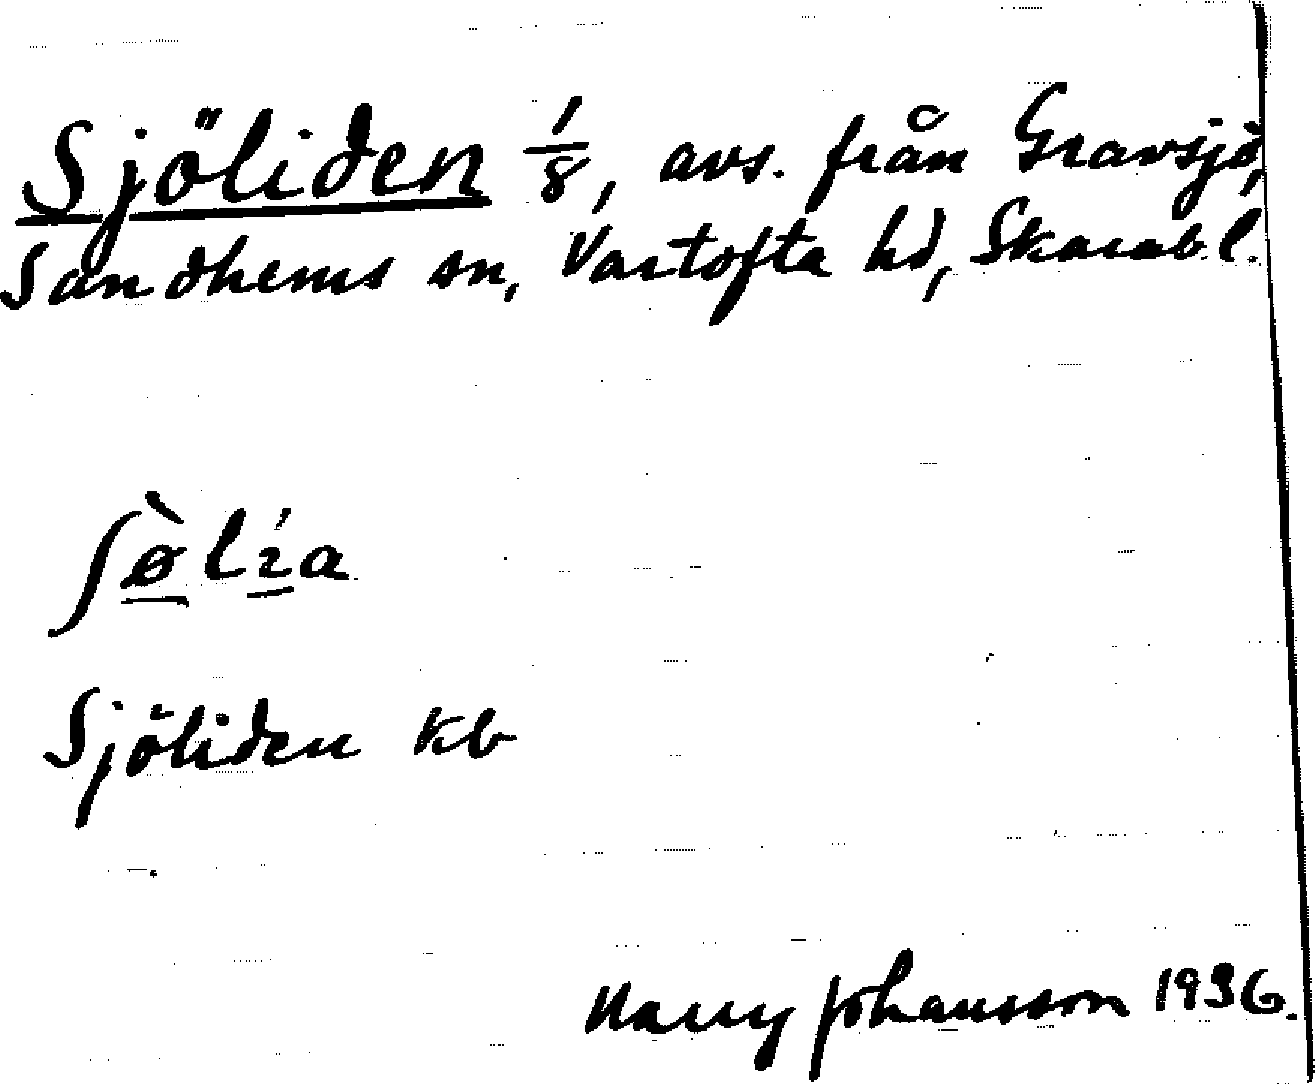 Sjöliden 1/8, avs. från Gravsjö,
Sandhems sn, Vartofta hd, Skarab. l.
ʃø̀lı́a
Sjöliden kb
Harry Johansson 1936.